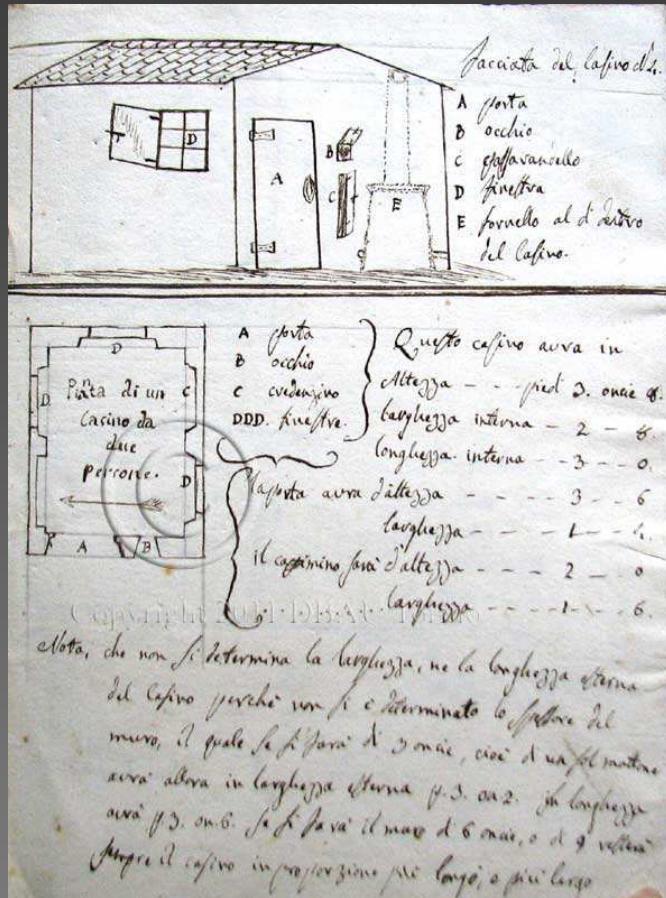 facciata del Casino d'
A porta
B occhio
C passavancello
D finestra
E fornello al di dentro
del Casino.
A
B
C
D
E
A porta
B occhio
C credenzino
DDD. finestre.
Pinta di un
casino da
due
persone.
D
D
C
D
A
B
Questo casino avra in
Altezza - - - piedi 3. oncie 8.
larghezza interna - 2 - 8.
longhezza interna - - 3 - - 0.
la porta avra d'altezza - - - 3 - - 6
larghezza - - - - 1 - -
il cammino sara d'altezza - - - 2 - - 0
larghezza - - - - 1 - - 6.
Copyright
Notta, che non si determina la larghezza, ne la longhezza esterna
del Casino perche non si è determinato lo spessore del
muro, il quale se si farà di 3 oncie, cioè di un sol mattone
avrà allora in larghezza esterna p. 3. on 2. in longhezza
avrà p. 3. on. 6. se si farà il muro di 6 oncie, o di 9
sempre il casino in proporzione più longo, e più largo